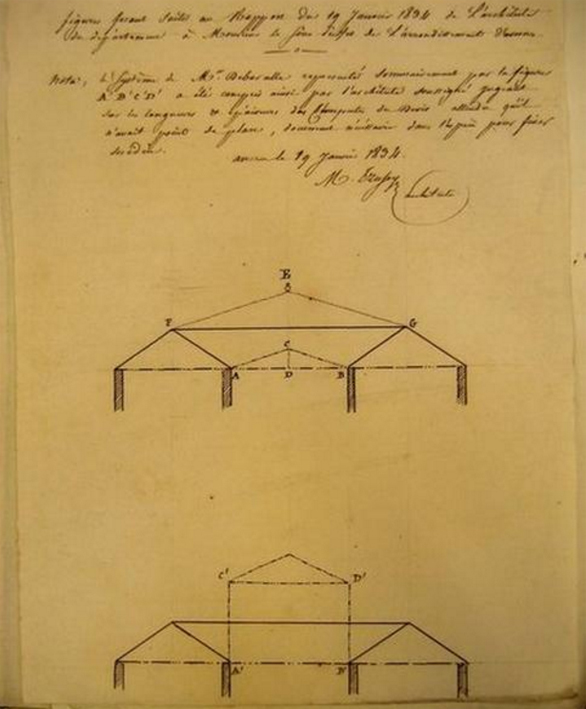 figures faisant suite au Rapport du 19 Janvier 1834 de l'architecte
du département à Monsieur le Sous Préfet de l'arrondissement
Nota, le Système de Mr. représenté sommairement par les figures
A' B' C' D' a été compris ainsi par l'architecte soussigné jugeant
sur les longueurs et épaisseurs des du Devis attendu qu'il
n'avait point de plans, document nécessaire dans l'espèce pour fixer
ses idées.
le 19 Janvier 1834.
M.
architecte
E
F G
C
A D B
C' D'
A' B'